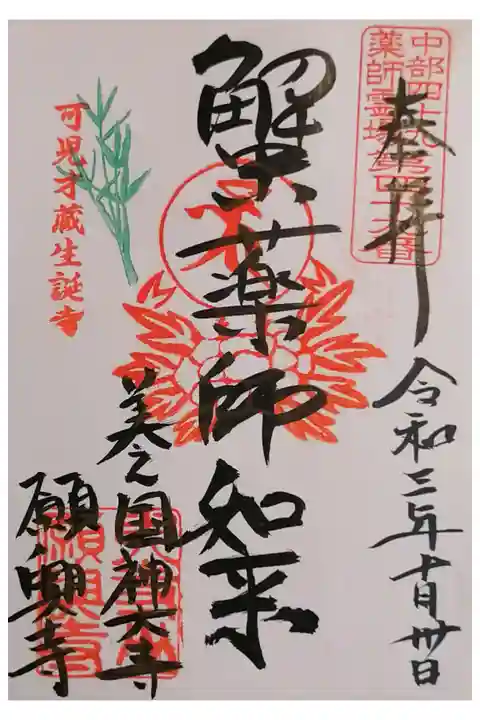 奉拝
中部四十九
薬師霊場第四十六番
令和三年十月卅日
蟹薬師如来
可児才蔵生誕寺
美之国神大寺
願興寺